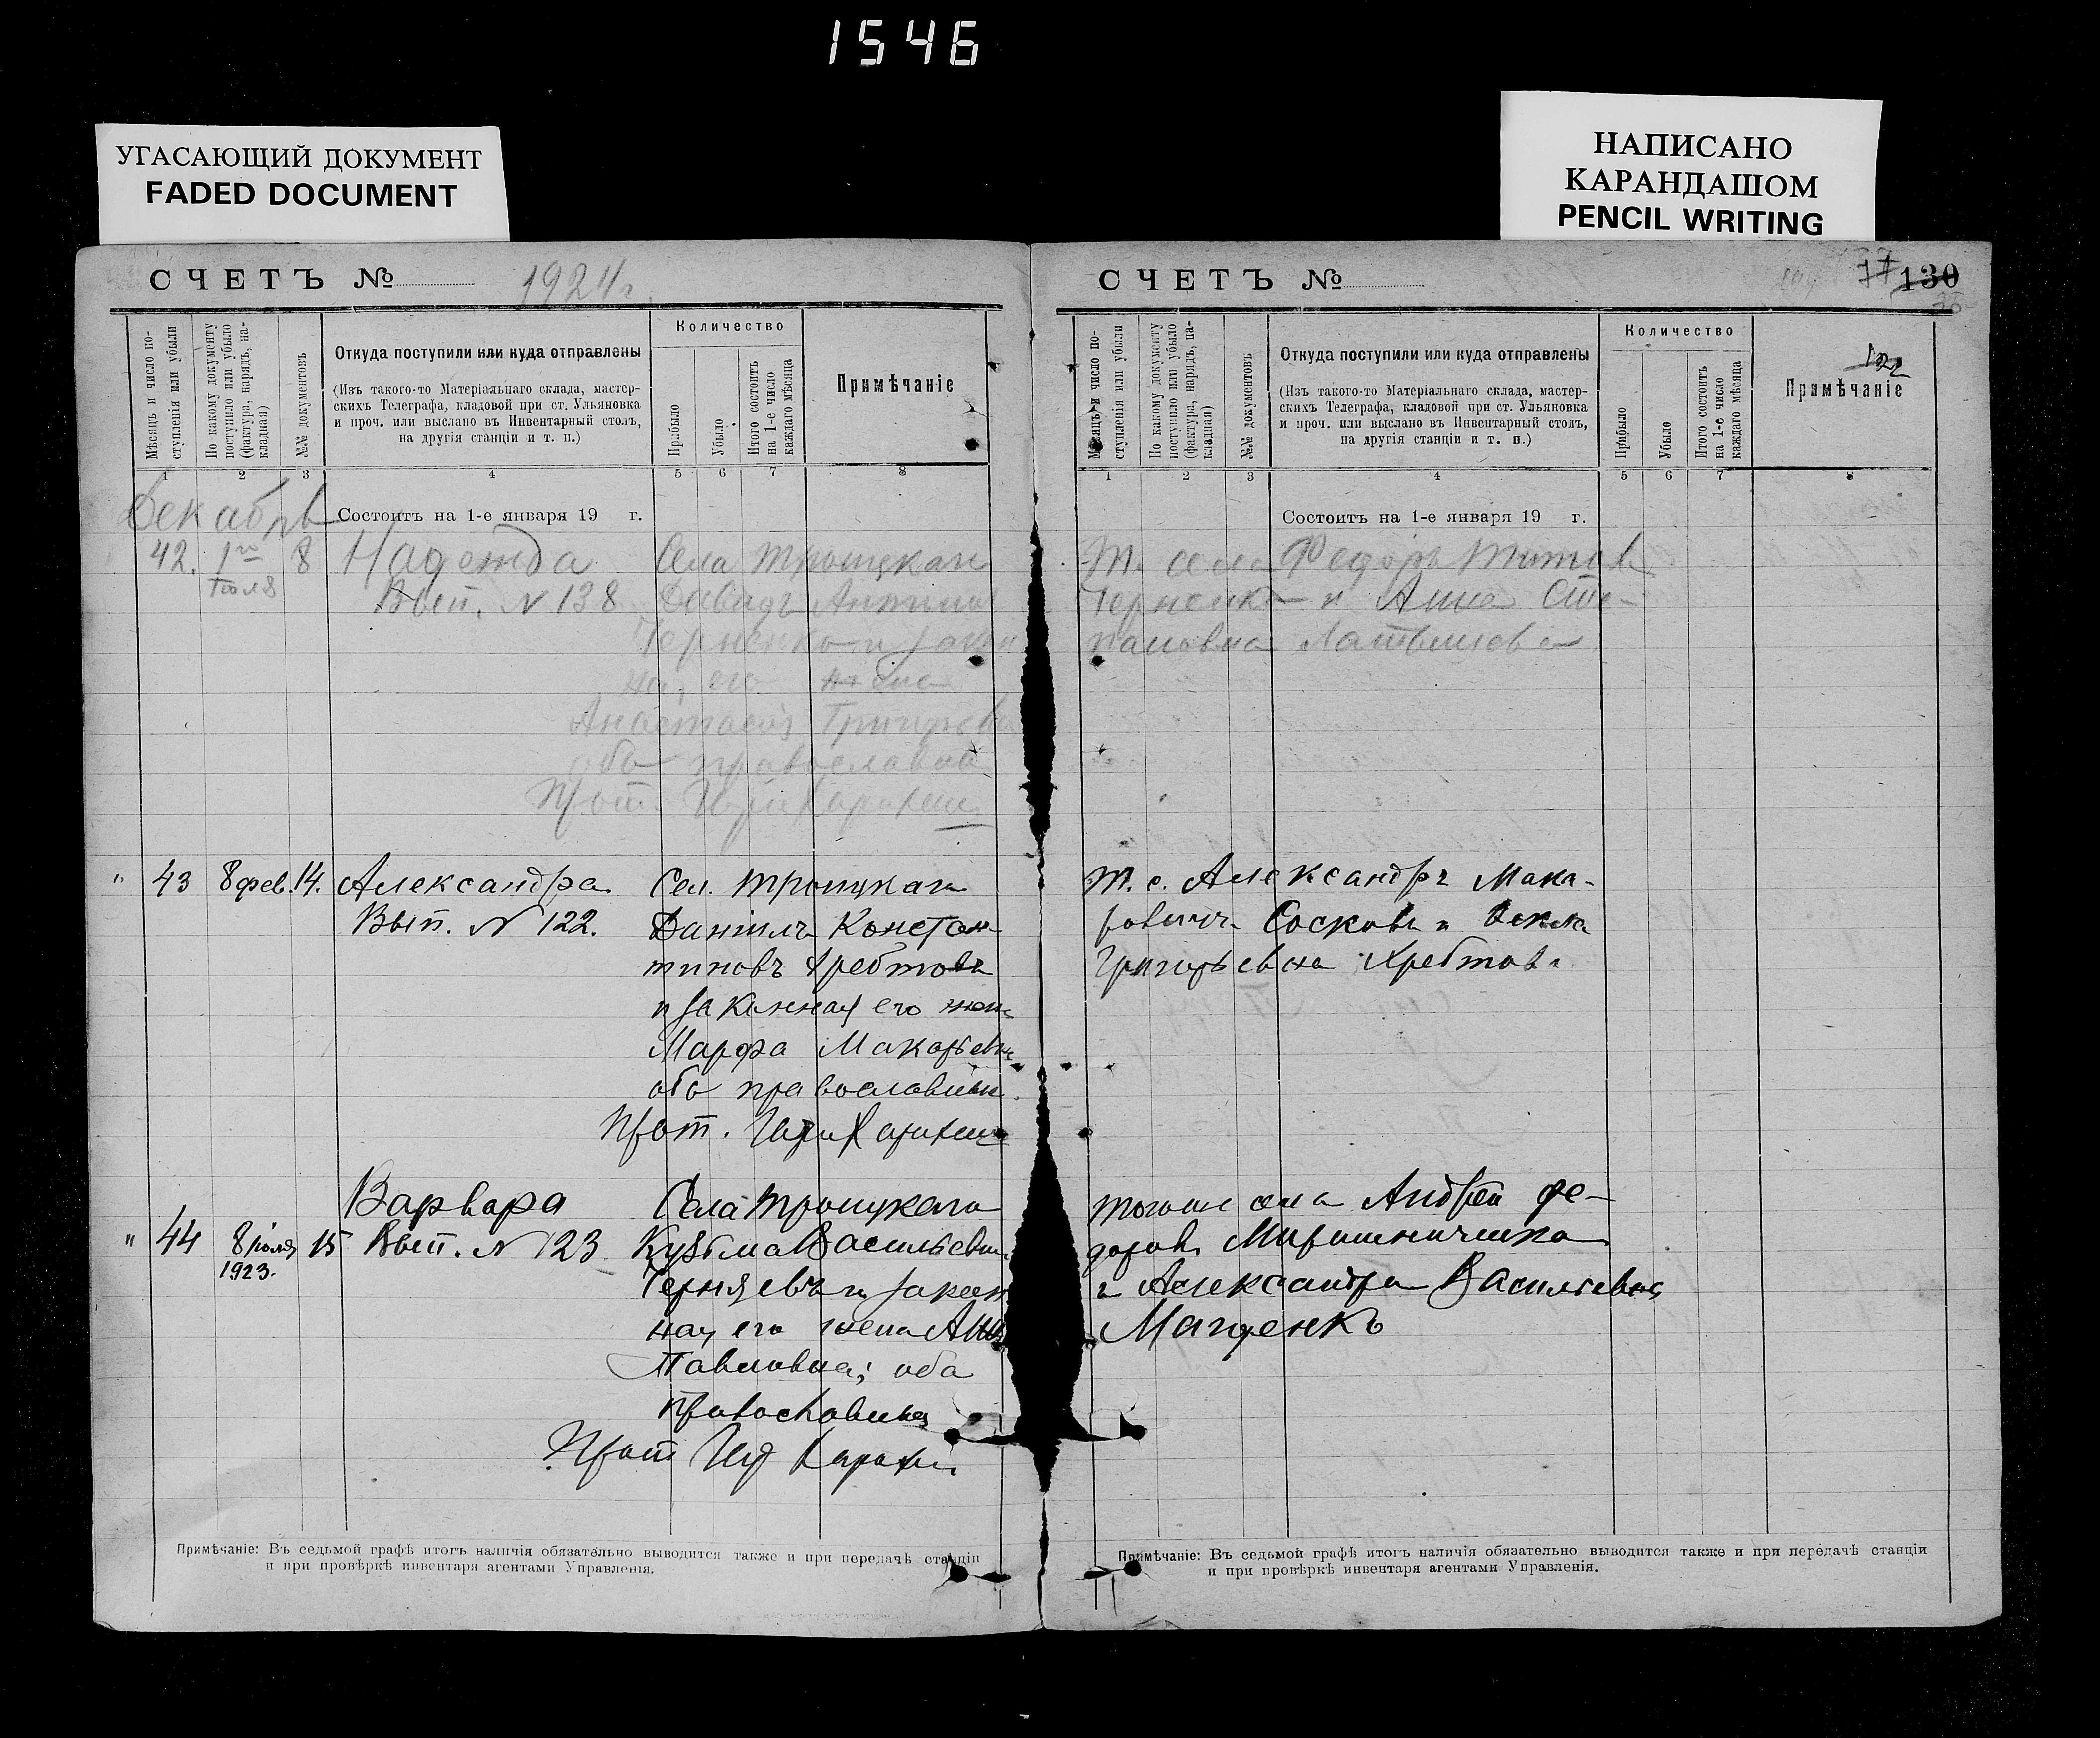 1546
УГАСАЮЩИЙ ДОКУМЕНТ
FADED DOCUMENT
НАПИСАНО
КАРАНДАШОМ
PENCIL WRITING
СЧЕТЪ №
1924 г.
Мѣсяцъ и число поступленія или убыли
По какому документу поступило или убыло (фактура, нарядъ, накладная)
№№ документовъ
Откуда поступили или куда отправлены
(Изъ такого-то Матеріальнаго склада, мастер-
скихъ Телеграфа, кладовой при ст. Ульяновка
и проч. или выслано въ Инвентарный столъ,
на другія станціи и т. п.)
Количество
Прибыло
Убыло
Итого состоитъ на 1-е число каждаго мѣсяца
Примѣчаніе
1 2 3 4 5 6 7 8
Декабрь
Состоитъ на 1-е января 19 г.
42. 1го 8 Надежда Села Троицкаго
Вып. N 138 Давидъ Антипов
Черненко и закон
ная его жена
Анастасія Григорьев
оба православные
Прот.
" 43 8 фев. 14. Александра Сел. Троицкаго
Вып. N 122. Даніилъ Констан-
тиновъ Хребтовъ
и законная его жена
Марфа Макарьевна
оба православные.
Прот.
Варвара Села Троицкаго
" 44 8 іюля 15 Вып. N 123 Кузьма Васильевич
1923.
Черняевъ и закон
ная его жена Анна
Павловна; оба
православные
Прот
Примѣчаніе: Въ седьмой графѣ итогъ наличія обязательно выводится также и при передачѣ станціи
и при провѣркѣ инвентаря агентами Управленія.
СЧЕТЪ №
37 130
Мѣсяцъ и число поступленія или убыли
По какому документу поступило или убыло (фактура, нарядъ, накладная)
№№ документовъ
Откуда поступили или куда отправлены
(Изъ такого-то Матеріальнаго склада, мастер-
скихъ Телеграфа, кладовой при ст. Ульяновка
и проч. или выслано въ Инвентарный столъ,
на другія станціи и т. п.)
Количество
Прибыло
Убыло
Итого состоитъ на 1-е число каждаго мѣсяца
122
Примѣчаніе
1 2 3 4 5 6 7 8
Состоитъ на 1-е января 19 г.
Т. села Федоръ Титов
Черненко и Анна Сте-
пановна
Т. с. Александръ Мака-
ровичъ Сосковъ и Текла
Григорьевна Хребтова
Тогоже села Андрей Фе-
доровъ Мирошниченко
и Александра Васильевна
Магденко
Примѣчаніе: Въ седьмой графѣ итогъ наличія обязательно выводится также и при передачѣ станціи
и при провѣркѣ инвентаря агентами Управленія.